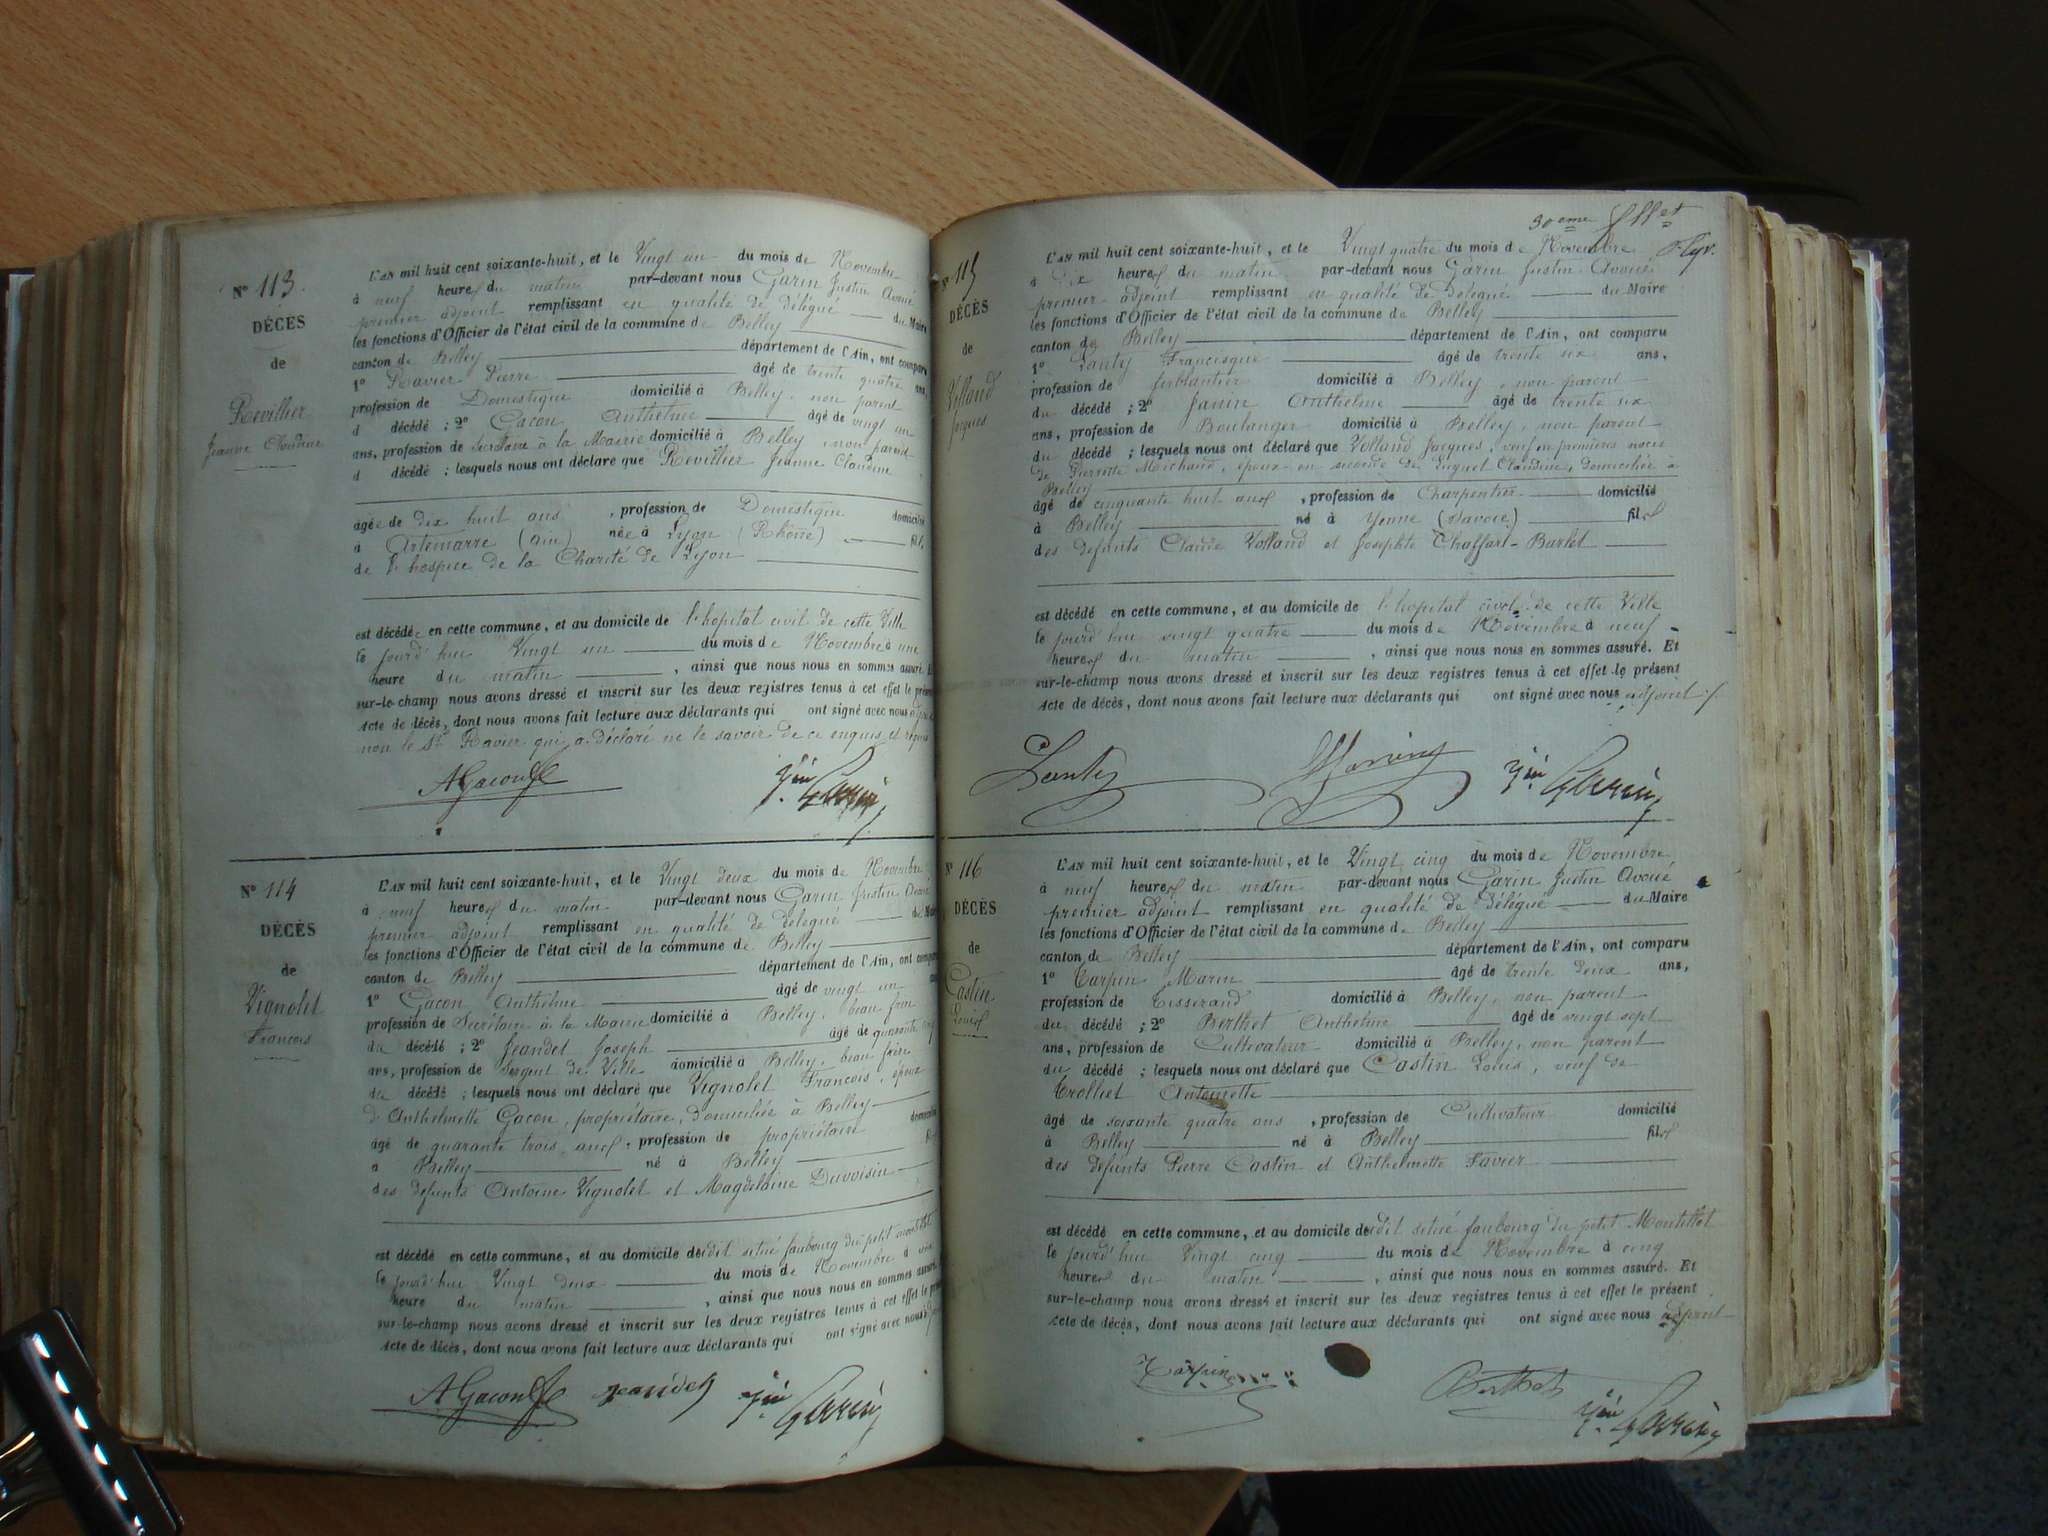 Nº 113.
DÉCÈS
de
Revillier
Jeanne Claudine
L'AN mil huit cent soixante-huit, et le Vingt un du mois de Novembre
à neuf heures du matin par-devant nous Garin Justin Avoué
premier adjoint remplissant en qualité de délégué du Maire
les fonctions d'Officier de l'état civil de la commune de Belley
canton de Belley département de l'Ain, ont comparu
1º Ravier Pierre âgé de trente quatre ans,
profession de Domestique domicilié à Belley, non parent
d décédé ; 2º Gacon Anthelme âgé de vingt un
ans, profession de Secrétaire à la Mairie domicilié à Belley, non parent
d décédé ; lesquels nous ont déclaré que Revillier Jeanne Claudine
âgée de dix huit ans, profession de Domestique domicilié
à Artemarre (Ain) née à Lyon (Rhône) fil
de l'hospice de la Charité de Lyon
est décédée en cette commune, et au domicile de l'hopital civil de cette Ville
le jourd'hui Vingt un du mois de Novembre à une
heure du matin, ainsi que nous nous en sommes assuré. Et
sur-le-champ nous avons dressé et inscrit sur les deux registres tenus à cet effet le présent
acte de décès, dont nous avons fait lecture aux déclarants qui ont signé avec nous
non le Sr Ravier qui a déclaré ne le savoir de ce enquis et requis
AGacon
Jin Garin
Nº 114
DÉCÈS
de
Vignolet
François
L'AN mil huit cent soixante-huit, et le Vingt deux du mois de Novembre
à neuf heures du matin par-devant nous Garin Justin Avoué
premier adjoint remplissant en qualité de délégué du Maire
les fonctions d'Officier de l'état civil de la commune de Belley
canton de Belley département de l'Ain, ont comparu
1º Gacon Anthelme âgé de vingt un ans
profession de Secrétaire à la Mairie domicilié à Belley, beau frère
du décédé ; 2º Jeandet Joseph âgé de quarante
ans, profession de Sergent de Ville domicilié à Belley, beau frère
du décédé ; lesquels nous ont déclaré que Vignolet François, époux
d'Anthelmette Gacon, propriétaire, domiciliée à Belley
âgé de quarante trois ans, profession de propriétaire domicilié
à Belley né à Belley fils
des défunts Antoine Vignolet et Magdelaine Duvoisin
est décédé en cette commune, et au domicile dudit situé faubourg du petit
le jourd'hui Vingt deux du mois de Novembre à une
heure du matin, ainsi que nous nous en sommes assuré.
sur-le-champ nous avons dressé et inscrit sur les deux registres tenus à cet effet le présent
acte de décès, dont nous avons fait lecture aux déclarants qui ont signé avec nous
AGacon Jeandet Jin Garin
30eme
Nº 115
DÉCÈS
de
Volland
Jacques
L'AN mil huit cent soixante-huit, et le Vingt quatre du mois de Novembre
à dix heures du matin par-devant nous Garin Justin Avoué
premier adjoint remplissant en qualité de Délégué du Maire
les fonctions d'Officier de l'état civil de la commune de Belley
canton de Belley département de l'Ain, ont comparu
1º Lanty Francisque âgé de trente six ans,
profession de ferblantier domicilié à Belley, non parent
du décédé ; 2º Janin Anthelme âgé de trente six
ans, profession de Boulanger domicilié à Belley, non parent
du décédé ; lesquels nous ont déclaré que Volland Jacques, veuf en premières noces
de Pierrette Marchand, époux en seconde de Suquet Claudine, domiciliée à
Belley
âgé de cinquante huit ans, profession de Charpentier domicilié
à Belley né à Yenne (Savoie) fils
des défunts Claude Volland et Josephte Chaffart-Barlet
est décédé en cette commune, et au domicile de l'hopital civil de cette Ville
le jourd'hui vingt quatre du mois de Novembre à neuf
heures du matin, ainsi que nous nous en sommes assuré. Et
sur-le-champ nous avons dressé et inscrit sur les deux registres tenus à cet effet le présent
acte de décès, dont nous avons fait lecture aux déclarants qui ont signé avec nous adjoint
Lanty Janin Jin Garin
Nº 116
DÉCÈS
de
Castin
Louis
L'AN mil huit cent soixante-huit, et le Vingt cinq du mois de Novembre
à neuf heures du matin par-devant nous Garin Justin Avoué
premier adjoint remplissant en qualité de délégué du Maire
les fonctions d'Officier de l'état civil de la commune de Belley
canton de Belley département de l'Ain, ont comparu
1º Carpin Marin âgé de trente deux ans,
profession de Tisserand domicilié à Belley, non parent
du décédé ; 2º Berthet Anthelme âgé de vingt sept
ans, profession de Cultivateur domicilié à Belley, non parent
du décédé ; lesquels nous ont déclaré que Castin Louis, veuf de
Trolliet Antoinette
âgé de soixante quatre ans, profession de Cultivateur domicilié
à Belley né à Belley fils
des défunts Pierre Castin et Anthelmette Favier
est décédé en cette commune, et au domicile dudit situé faubourg du petit Montillet
le jourd'hui Vingt cinq du mois de Novembre à cinq
heures du matin, ainsi que nous nous en sommes assuré. Et
sur-le-champ nous avons dressé et inscrit sur les deux registres tenus à cet effet le présent
acte de décès, dont nous avons fait lecture aux déclarants qui ont signé avec nous adjoint
Carpin Berthet Jin Garin